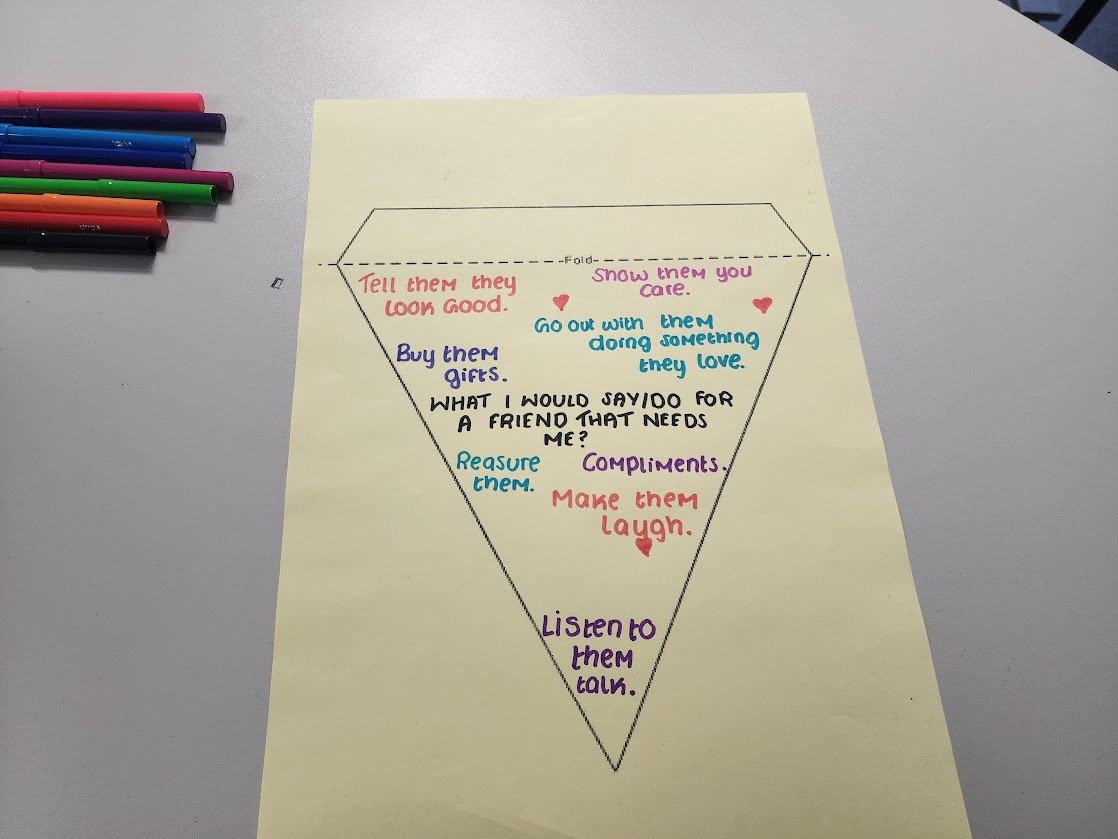 -Fold-
Tell them they
look Good.
Show them you
care.
Go out with them
doing something
they love.
Buy them
gifts.
WHAT I WOULD SAY/DO FOR
A FRIEND THAT NEEDS
ME?
Reasure
them.
Compliments.
Make them
laugh.
Listen to
them
talk.